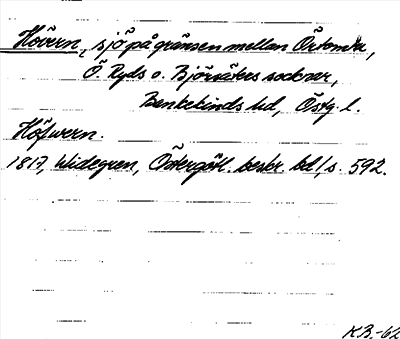 Hövern, sjö på gränsen mellan Örtomta,
Ö. Ryds o. Björsäters socknar,
Bankekinds hd, Östg. l.
Höfwern.
1817, Widegren, Östergötl. beskr. bd 1, s. 592.
K.B.-62